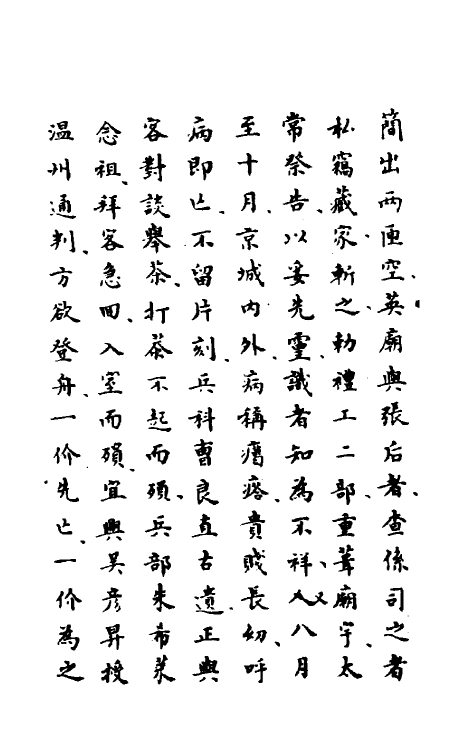 簡出兩匣空英廟與張后者查係司之者
私竊藏家斬之勅禮工二部重葺廟宇太
常祭告以妥先靈識者知為不祥又八月
至十月京城内外病稱瘩貴賤長幼呼
病即亡不留片刻兵科曹良直古遺正與
客對談舉茶打茶不起而殞兵部朱希萊
念祖拜客急回入室而殞宜興吳彦昇授
温州通判方欲登舟一价先亡一价為之